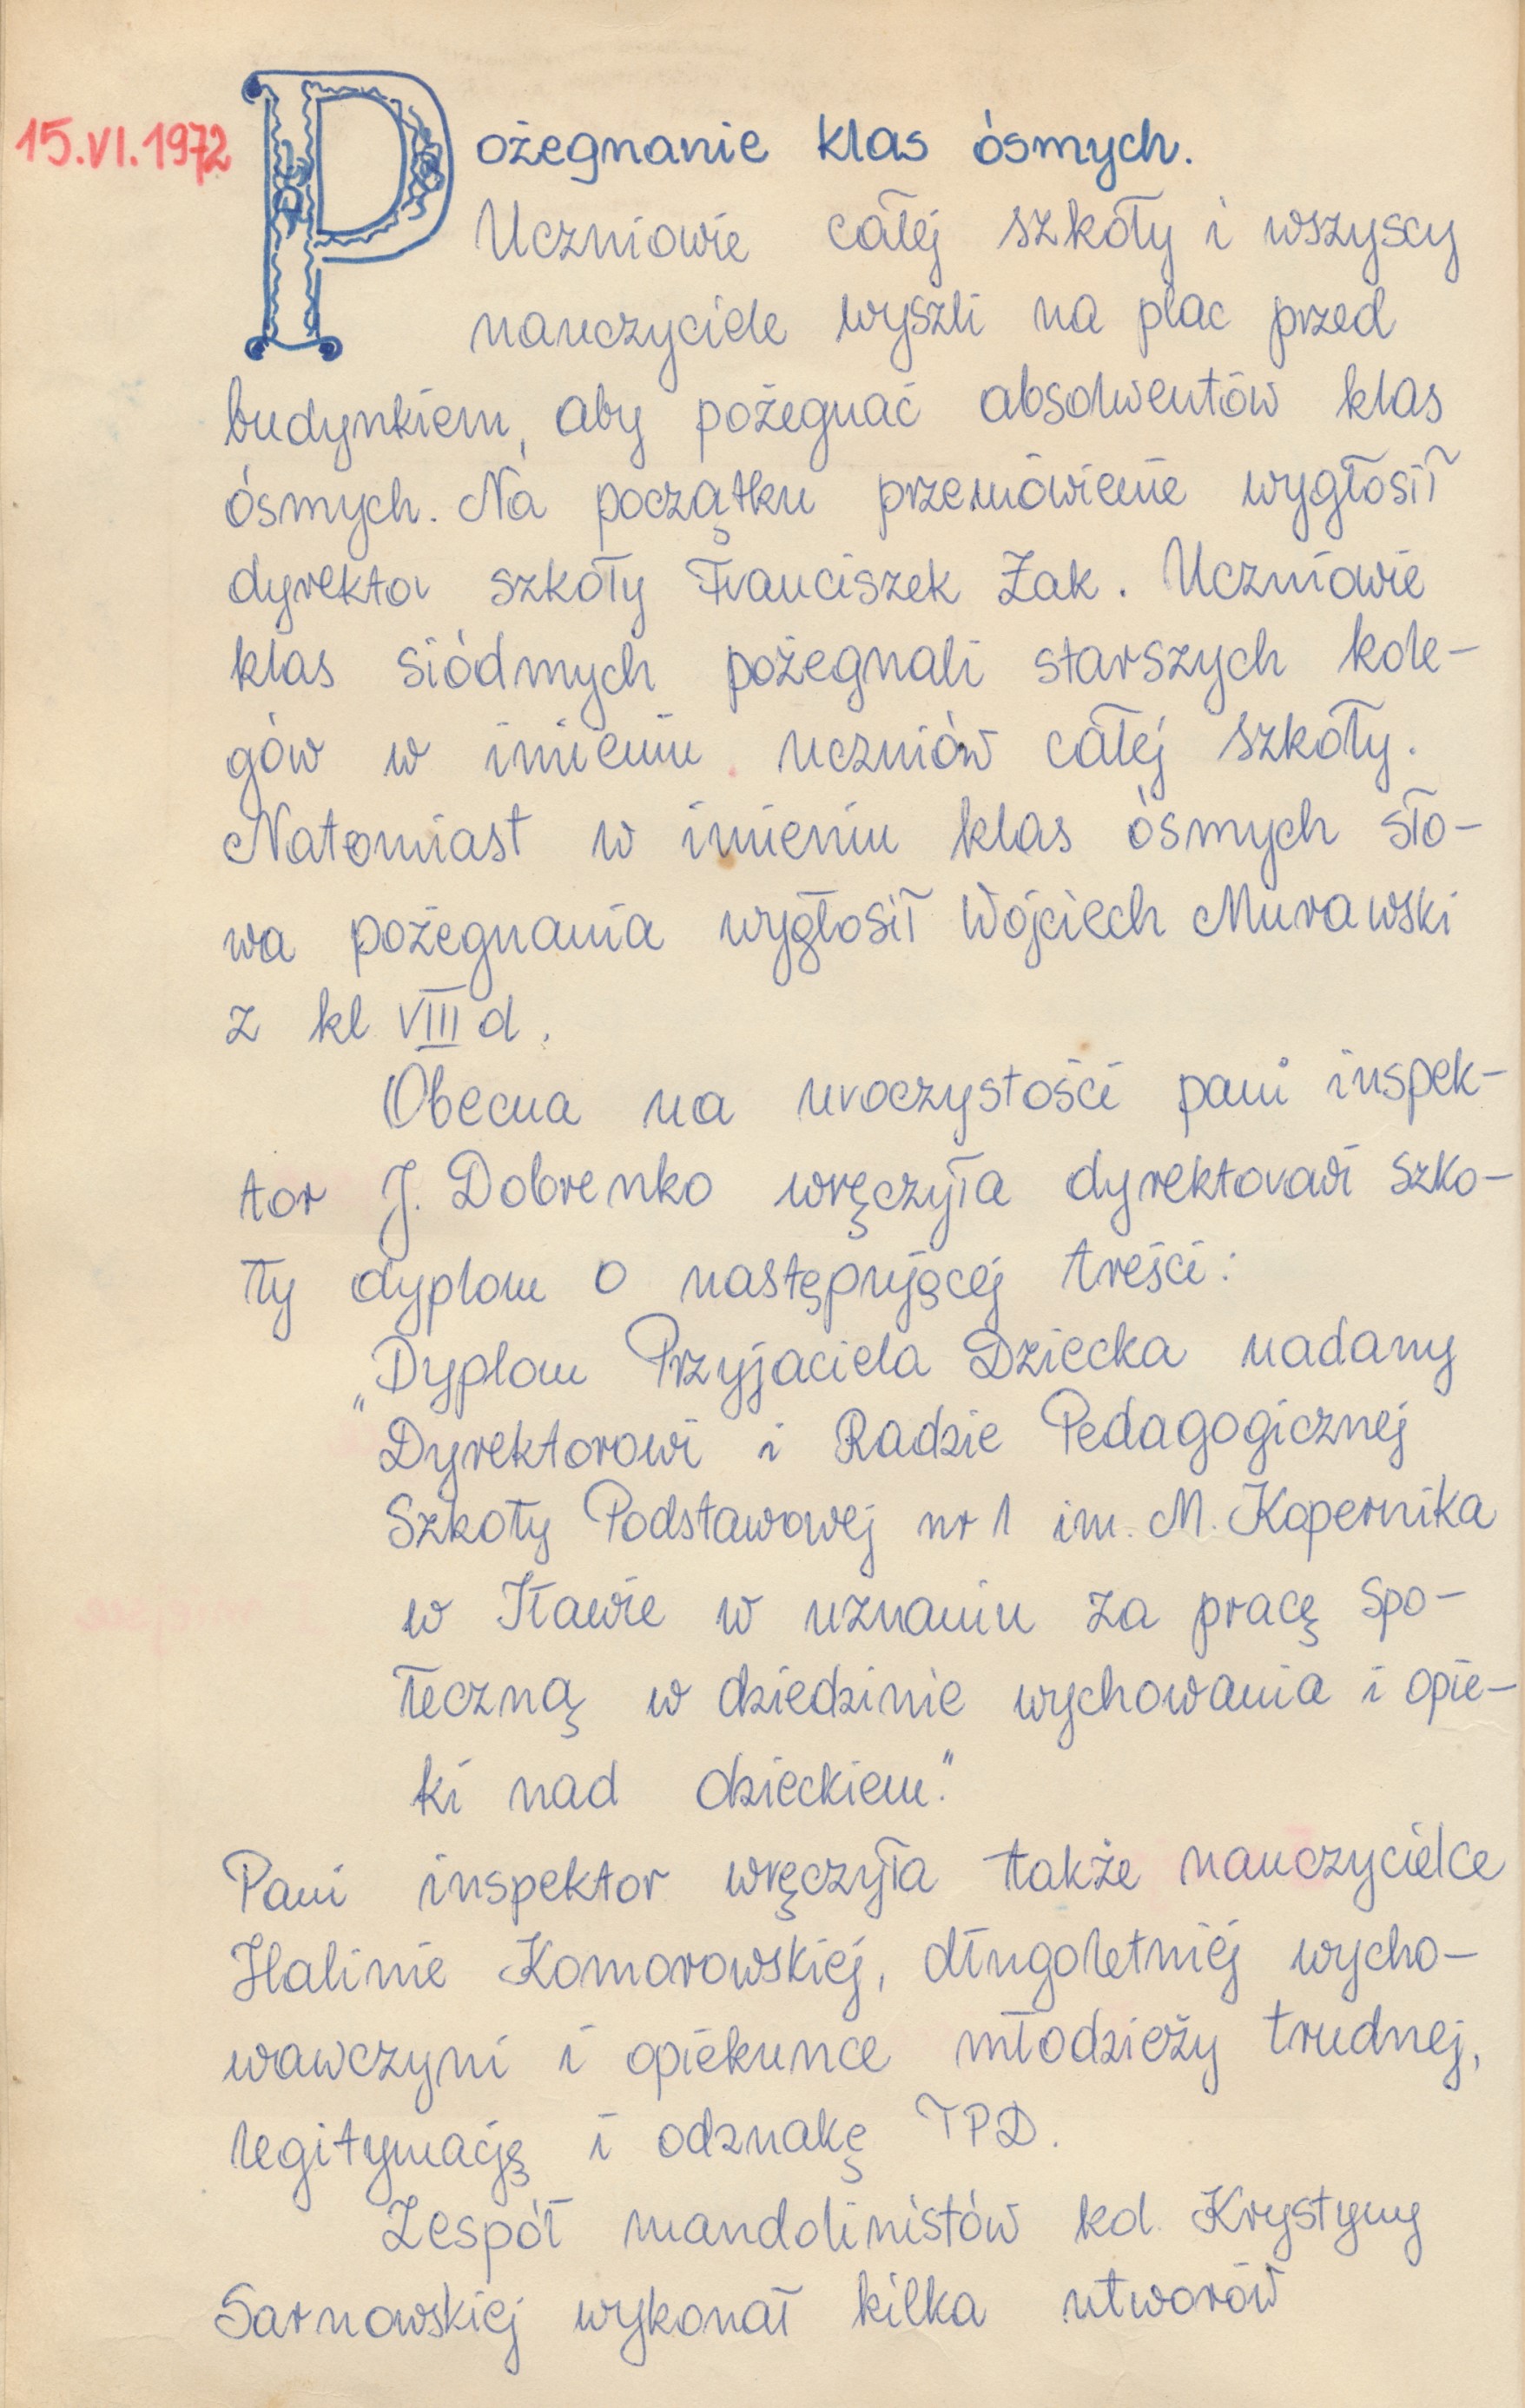 15.VI.1972 Pożegnanie klas ósmych.
Uczniowie całej szkoły i wszyscy
nauczyciele wyszli na plac przed
budynkiem, aby pożegnać absolwentów klas
ósmych. Na początku przemówienie wygłosił
dyrektor szkoły Franciszek Żak. Uczniowie
klas siódmych pożegnali starszych kole-
gów w imieniu uczniów całej szkoły.
Natomiast w imieniu klas ósmych sło-
wa pożegnania wygłosił Wojciech Murawski
z kl. VIII d.
Obecna na uroczystości pani inspek-
tor J. Dobrenko wręczyła dyrektorowi szko-
ły dyplom o następującej treści:
„Dyplom Przyjaciela Dziecka nadany
Dyrektorowi i Radzie Pedagogicznej
Szkoły Podstawowej nr 1 im. M. Kopernika
w Iławie w uznaniu za pracę spo-
łeczną w dziedzinie wychowania i opie-
ki nad dzieckiem."
Pani inspektor wręczyła także nauczycielce
Halinie Komorowskiej, długoletniej wycho-
wawczyni i opiekunce młodzieży trudnej,
legitymację i odznakę TPD.
Zespół mandolinistów kol. Krystyny
Sarnowskiej wykonał kilka utworów